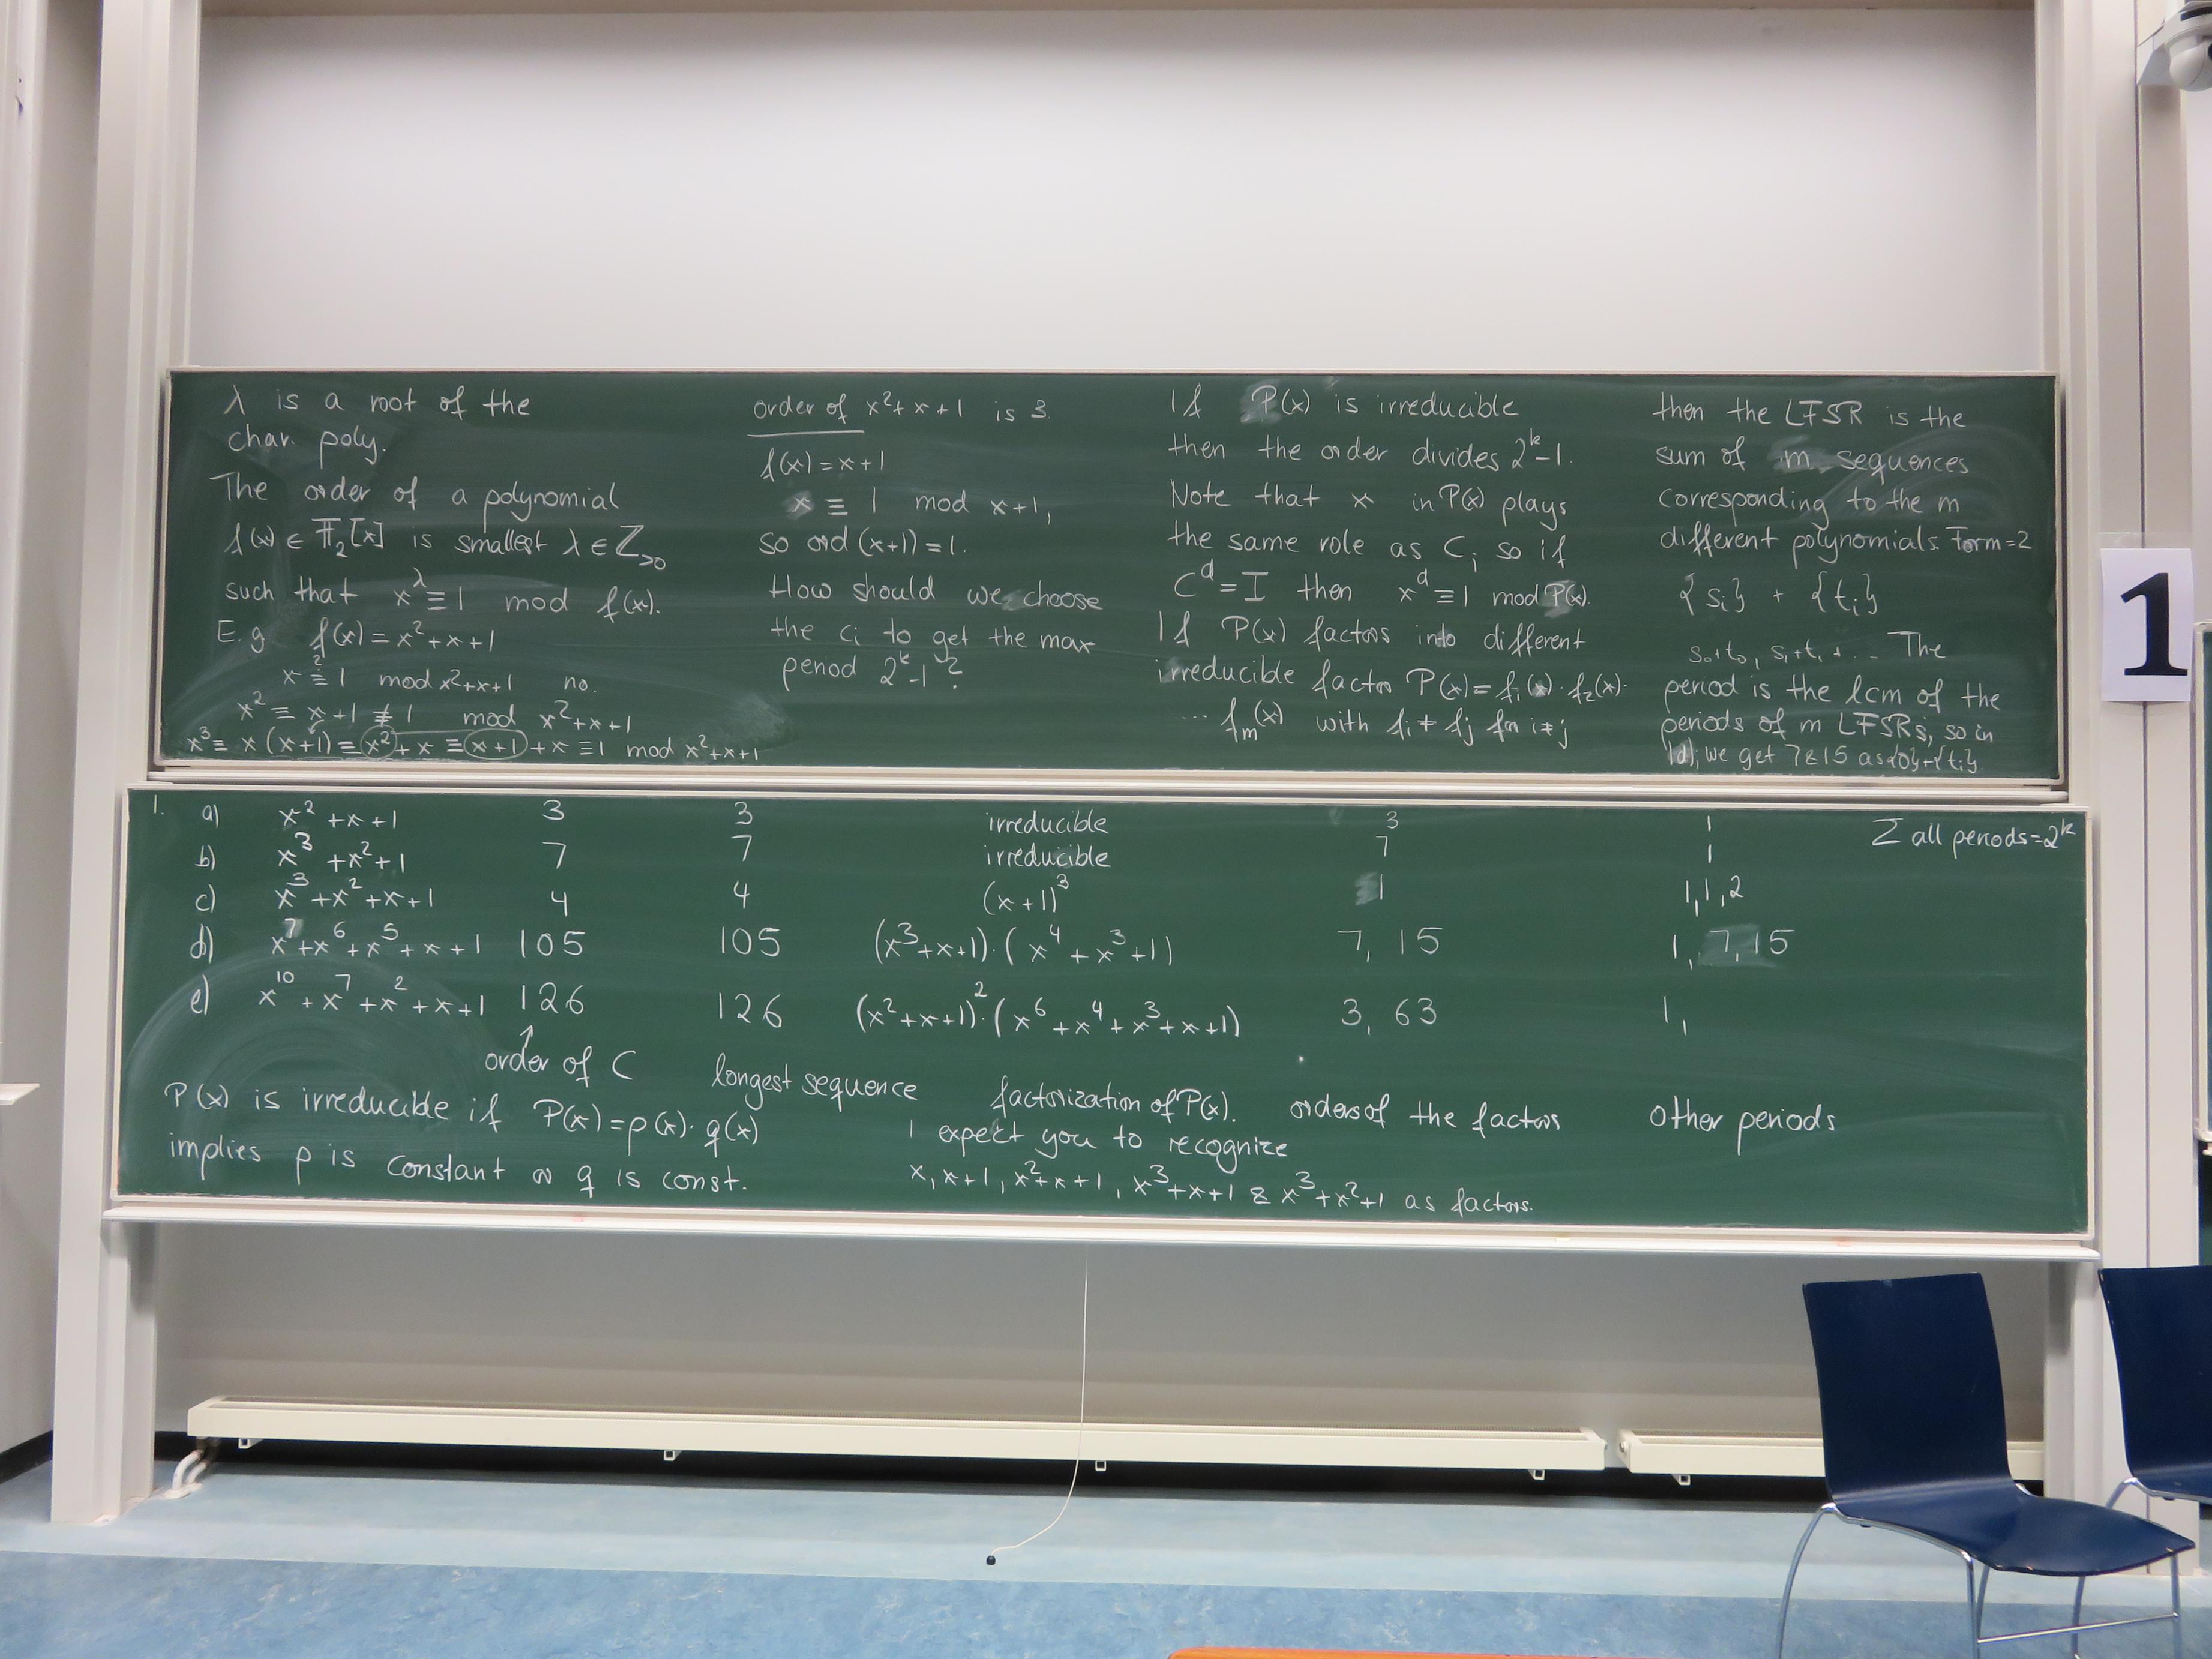 λ is a root of the
char. poly.
The order of a polynomial
f(x) ∈ F₂[x] is smallest λ ∈ Z>0
such that x^λ ≡ 1 mod f(x).
E.g f(x) = x²+x+1
x ≟ 1 mod x²+x+1 no.
x² ≡ x+1 ≢ 1 mod x²+x+1
x³ ≡ x(x+1) ≡ x²+x ≡ x+1+x ≡ 1 mod x²+x+1
order of x²+x+1 is 3.
f(x) = x+1
x ≡ 1 mod x+1,
so ord(x+1) = 1.
How should we choose
the ci to get the max
period 2^k-1?
If P(x) is irreducible
then the order divides 2^k-1.
Note that x in P(x) plays
the same role as C, so if
C^d = I then x^d ≡ 1 mod P(x).
If P(x) factors into different
irreducible factor P(x) = f₁(x)·f₂(x)·
... fm(x) with fi ≠ fj for i≠j
then the LFSR is the
sum of m sequences
corresponding to the m
different polynomials. For m=2
{si} + {ti}
s₀+t₀, s₁+t₁, ... The
period is the lcm of the
periods of m LFSRs, so in
1d); we get 7&15 as {0}+{ti}
1. a) x²+x+1 3 3 irreducible 3 1 Σ all periods = 2^k
b) x³+x²+1 7 7 irreducible 7 1
c) x³+x²+x+1 4 4 (x+1)³ 1 1,1,2
d) x⁷+x⁶+x⁵+x+1 105 105 (x³+x+1)·(x⁴+x³+1) 7, 15 1, 7,15
e) x¹⁰+x⁷+x²+x+1 126 126 (x²+x+1)²·(x⁶+x⁴+x³+x+1) 3, 63 1,
↑
order of C longest sequence factorization of P(x). orders of the factors other periods
P(x) is irreducible if P(x) = p(x)·q(x)
implies p is constant or q is const.
I expect you to recognize
x, x+1, x²+x+1, x³+x+1 & x³+x²+1 as factors.
1